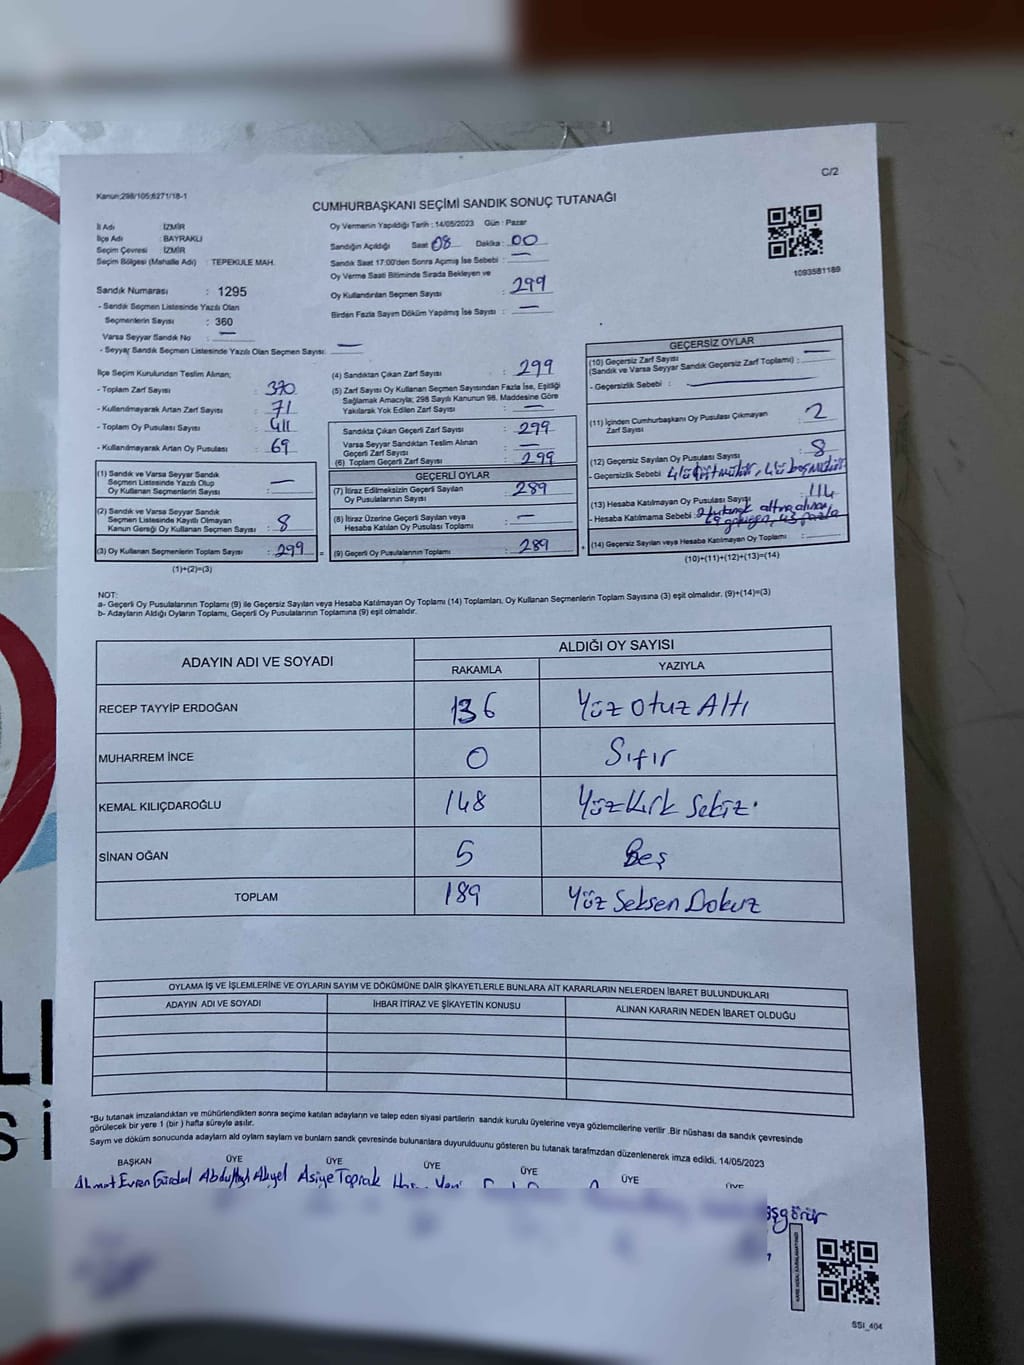 C/2
Kanun:298/105;6271/18-1
CUMHURBAŞKANI SEÇİMİ SANDIK SONUÇ TUTANAĞI
İl Adı : İZMİR
İlçe Adı : BAYRAKLI
Seçim Çevresi : İZMİR
Seçim Bölgesi (Mahalle Adı) : TEPEKULE MAH.
Sandık Numarası : 1295
- Sandık Seçmen Listesinde Yazılı Olan
Seçmenlerin Sayısı : 360
Varsa Seyyar Sandık No : —
- Seyyar Sandık Seçmen Listesinde Yazılı Olan Seçmen Sayısı: —
Oy Vermenin Yapıldığı Tarih : 14/05/2023 Gün : Pazar
Sandığın Açıldığı Saat 08 Dakika : 00
Sandık Saat 17:00'den Sonra Açımış İse Sebebi : —
Oy Verme Saati Bitiminde Sırada Bekleyen ve
Oy Kullandırılan Seçmen Sayısı : 299
Birden Fazla Sayım Döküm Yapılmış İse Sayısı : —
1093581189
İlçe Seçim Kurulundan Teslim Alınan;
- Toplam Zarf Sayısı : 370
- Kullanılmayarak Artan Zarf Sayısı : 71
- Toplam Oy Pusulası Sayısı : 411
- Kullanılmayarak Artan Oy Pusulası : 69
(1) Sandık ve Varsa Seyyar Sandık
Seçmen Listesinde Yazılı Olup
Oy Kullanan Seçmenlerin Sayısı : —
(2) Sandık ve Varsa Seyyar Sandık
Seçmen Listesinde Kayıtlı Olmayan
Kanun Gereği Oy Kullanan Seçmen Sayısı : 8
(3) Oy Kullanan Seçmenlerin Toplam Sayısı : 299
(1)+(2)=(3)
(4) Sandıktan Çıkan Zarf Sayısı : 299
(5) Zarf Sayısı Oy Kullanan Seçmen Sayısından Fazla İse, Eşitliği
Sağlamak Amacıyla; 298 Sayılı Kanunun 98. Maddesine Göre
Yakılarak Yok Edilen Zarf Sayısı : —
Sandıkta Çıkan Geçerli Zarf Sayısı : 299
Varsa Seyyar Sandıktan Teslim Alınan
Geçerli Zarf Sayısı : —
(6) Toplam Geçerli Zarf Sayısı : 299
GEÇERLİ OYLAR
(7) İtiraz Edilmeksizin Geçerli Sayılan
Oy Pusulalarının Sayısı : 289
(8) İtiraz Üzerine Geçerli Sayılan veya
Hesaba Katılan Oy Pusulası Toplamı : —
(9) Geçerli Oy Pusulalarının Toplamı : 289
GEÇERSİZ OYLAR
(10) Geçersiz Zarf Sayısı
(Sandık ve Varsa Seyyar Sandık Geçersiz Zarf Toplamı) : —
- Geçersizlik Sebebi : —
(11) İçinden Cumhurbaşkanı Oy Pusulası Çıkmayan
Zarf Sayısı : 2
(12) Geçersiz Sayılan Oy Pusulası Sayısı : 8
- Geçersizlik Sebebi :
(13) Hesaba Katılmayan Oy Pusulası Sayısı : 114
- Hesaba Katılmama Sebebi : 2 tutanak altına alınan,
43 fazla
(14) Geçersiz Sayılan veya Hesaba Katılmayan Oy Toplamı :
(10)+(11)+(12)+(13)=(14)
NOT:
a- Geçerli Oy Pusulalarının Toplamı (9) ile Geçersiz Sayılan veya Hesaba Katılmayan Oy Toplamı (14) Toplamları, Oy Kullanan Seçmenlerin Toplam Sayısına (3) eşit olmalıdır. (9)+(14)=(3)
b- Adayların Aldığı Oyların Toplamı, Geçerli Oy Pusulalarının Toplamına (9) eşit olmalıdır.
ADAYIN ADI VE SOYADI ALDIĞI OY SAYISI
RAKAMLA YAZIYLA
RECEP TAYYİP ERDOĞAN 136 Yüz Otuz Altı
MUHARREM İNCE 0 Sıfır
KEMAL KILIÇDAROĞLU 148 Yüz Kırk Sekiz.
SİNAN OĞAN 5 Beş
TOPLAM 189 Yüz Seksen Dokuz
OYLAMA İŞ VE İŞLEMLERİNE VE OYLARIN SAYIM VE DÖKÜMÜNE DAİR ŞİKAYETLERLE BUNLARA AİT KARARLARIN NELERDEN İBARET BULUNDUKLARI
ADAYIN ADI VE SOYADI İHBAR İTİRAZ VE ŞİKAYETİN KONUSU ALINAN KARARIN NEDEN İBARET OLDUĞU
*Bu tutanak imzalandıktan ve mühürlendikten sonra seçime katılan adayların ve talep eden siyasi partilerin sandık kurulu üyelerine veya gözlemcilerine verilir .Bir nüshası da sandık çevresinde
görülecek bir yere 1 (bir ) hafta süreyle asılır.
Sayım ve döküm sonucunda adayların ald oyların sayların ve bunların sandk çevresinde bulunanlara duyurulduunu gösteren bu tutanak tarafmzdan düzenlenerek imza edildi. 14/05/2023
BAŞKAN ÜYE ÜYE ÜYE ÜYE ÜYE ÜYE
Ahmet Evren Gürdal Abdullah Akyel Asiye Toprak
SSI_404